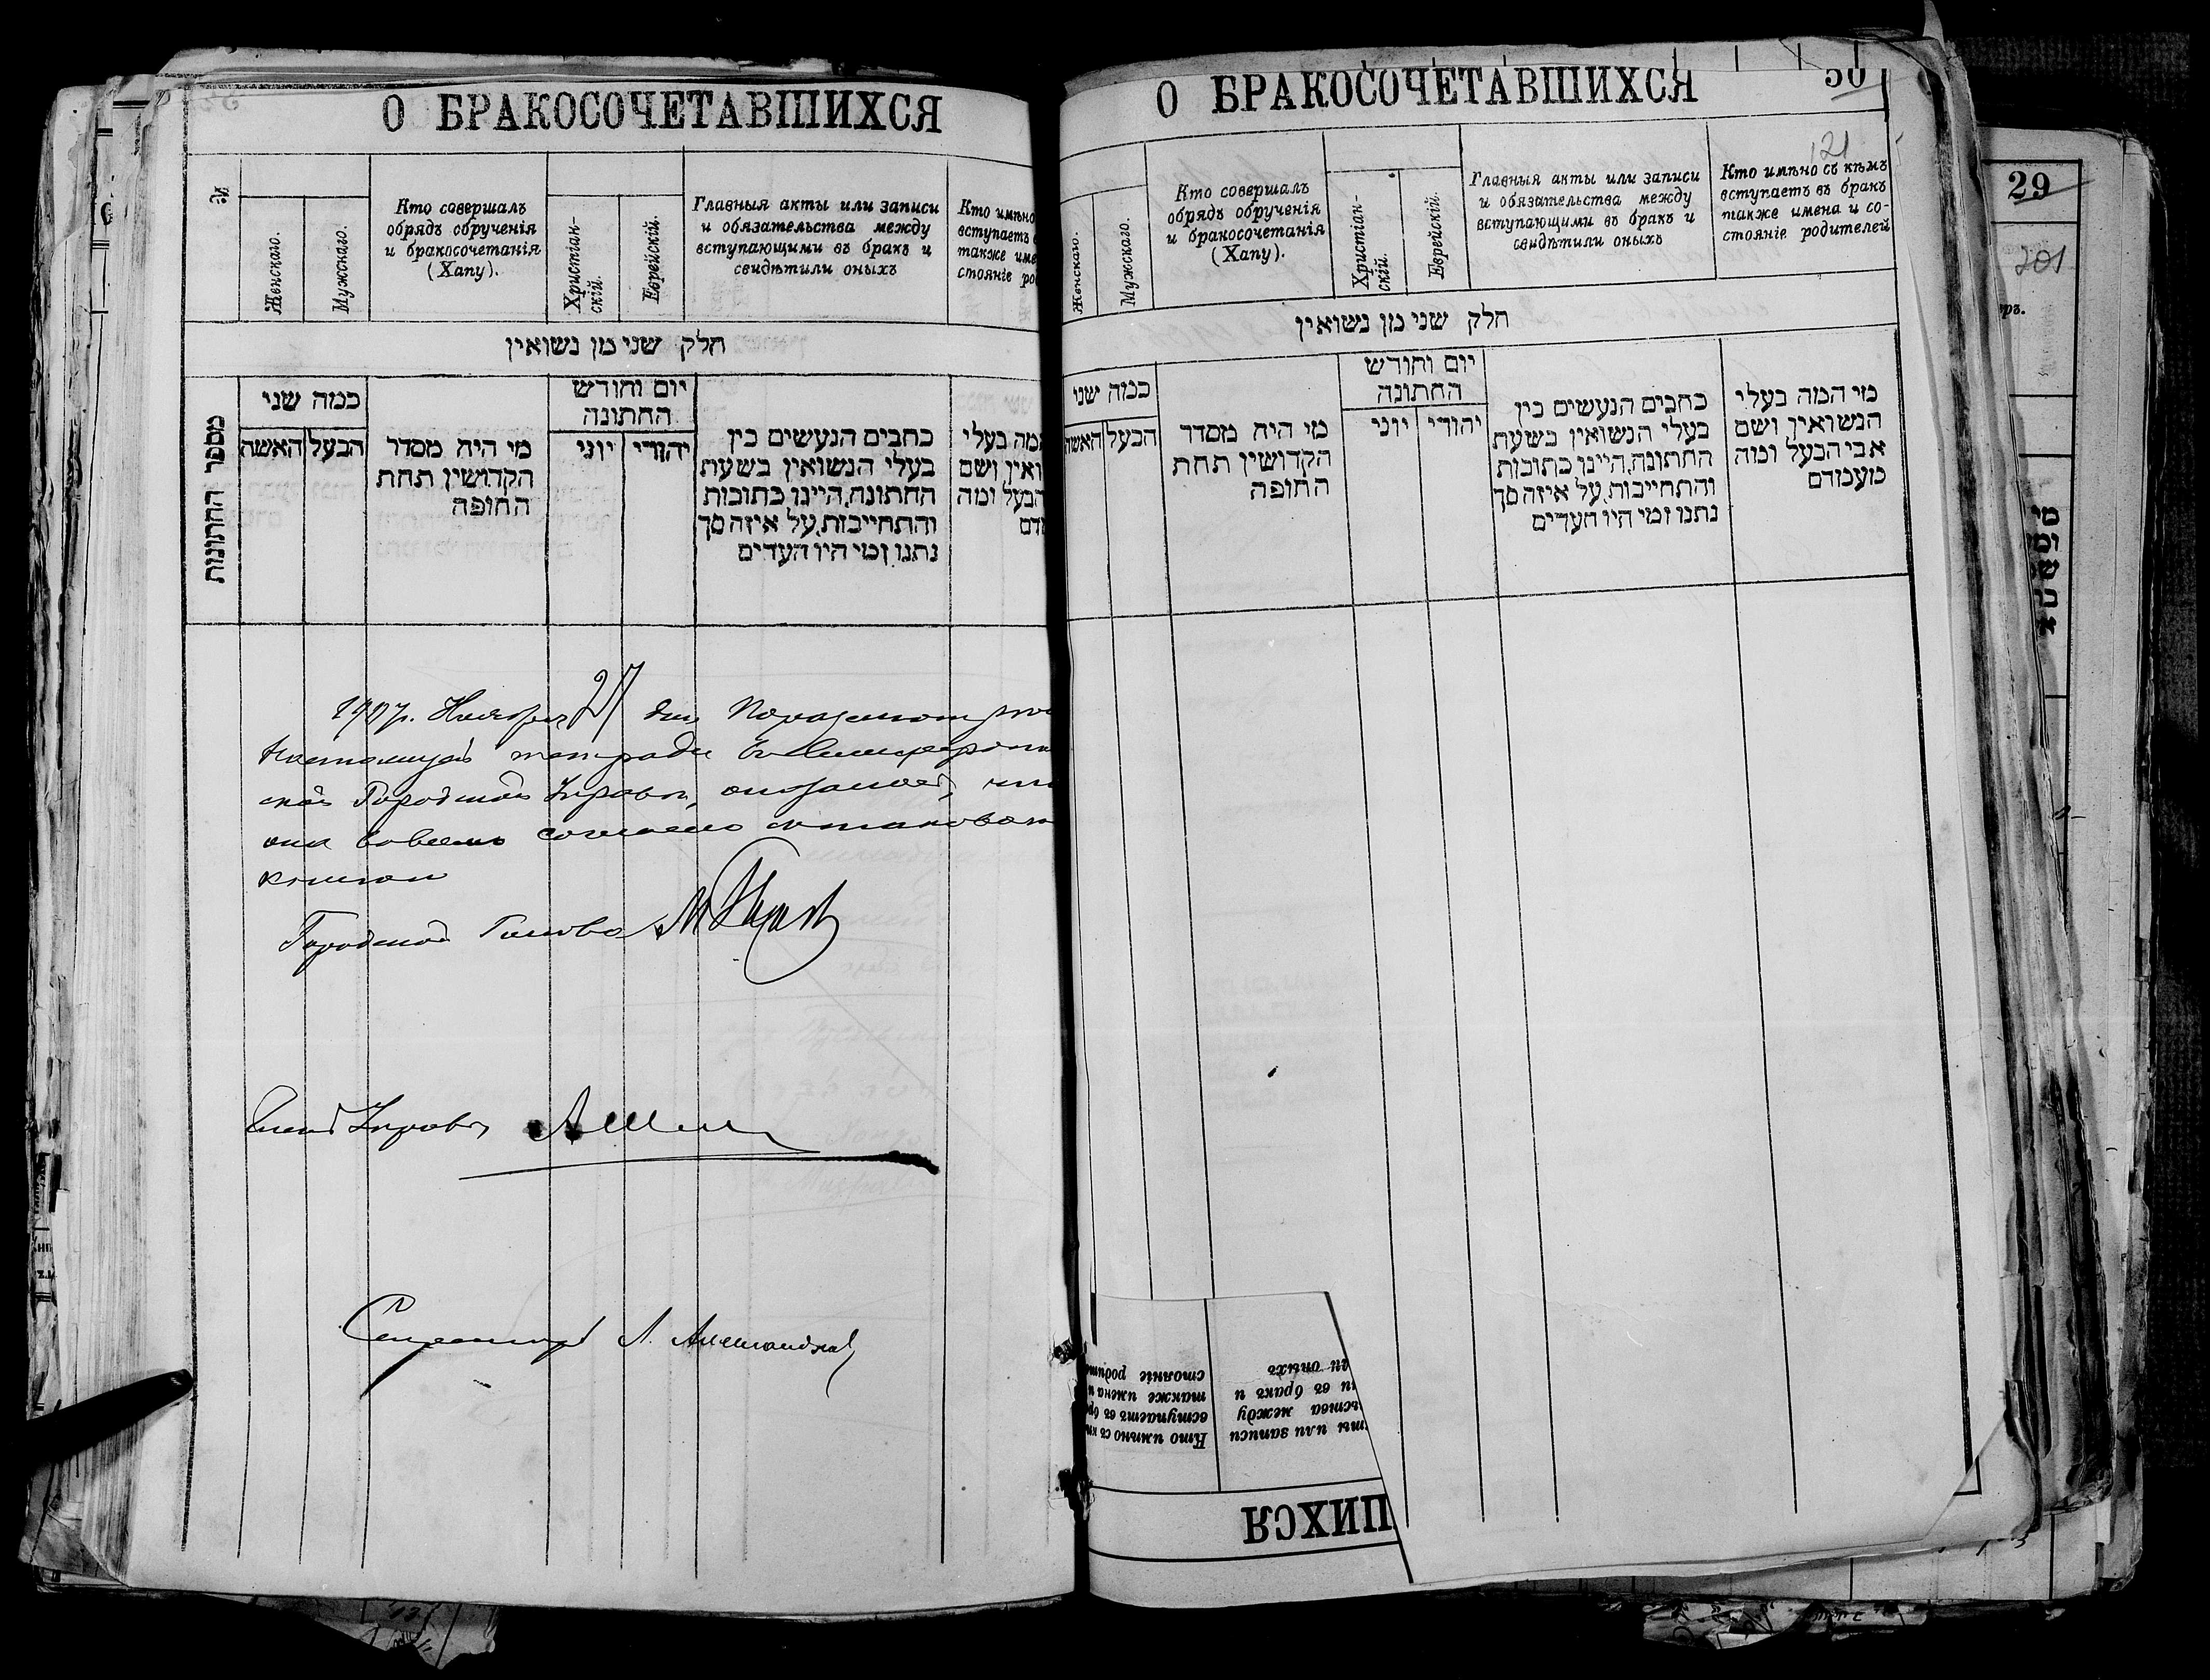 О БРАКОСОЧЕТАВШИХСЯ
№
Женскаго.
Мужскаго.
Кто совершалъ
обрядъ обрученія
и бракосочетанія
(Хапу).
Христіан-
скій.
Еврейскій.
Главныя акты или записи
и обязательства между
вступающими въ бракъ и
свидѣтили оныхъ
Кто имѣно
вступаетъ
также име
стояніе ро
חלק שני מן נשואין
מספר החתונות
כמה שני
האשה
הבעל
מי היה מסדר
הקדושין תחת
החופה
יום וחודש
החתונה
יוני
יהודי
כתבים הנעשים בין
בעלי הנשואין בשעת
החתונה, היינו כתובות
והתחייבות, על איזה סך
נתנו ומי היו העדים
המה בעלי
ואין ושם
הבעל ומה
דם
1907г. Ноября 27 дня По разсмотр
настоящей тетради въ Симферополь
ской Городской Управѣ, оказалось, что
она во всемъ согласно
Городской Голова
Членъ Управы
Секретарь Л. Александров
О БРАКОСОЧЕТАВШИХСЯ
50
121
Женскаго.
Мужскаго.
Кто совершалъ
обрядъ обрученія
и бракосочетанія
(Хапу).
Христіан-
скій.
Еврейскій.
Главныя акты или записи
и обязательства между
вступающими въ бракъ и
свидѣтили оныхъ
Кто имѣно съ кѣмъ
вступаетъ въ бракъ
также имена и со-
стояніе родителей
חלק שני מן נשואין
כמה שני
האשה
הבעל
מי היה מסדר
הקדושין תחת
החופה
יום וחודש
החתונה
יוני
יהודי
כתבים הנעשים בין
בעלי הנשואין בשעת
החתונה, היינו כתובות
והתחייבות, על איזה סך
נתנו ומי היו העדים
מי המה בעלי
הנשואין ושם
אבי הבעל ומה
מעמדם
29
201
Кто имѣно съ к
вступаетъ въ бр
также имена и
стояніе родит
ты или записи
ьства между
и въ бракъ и
ли оныхъ
ШИХСЯ